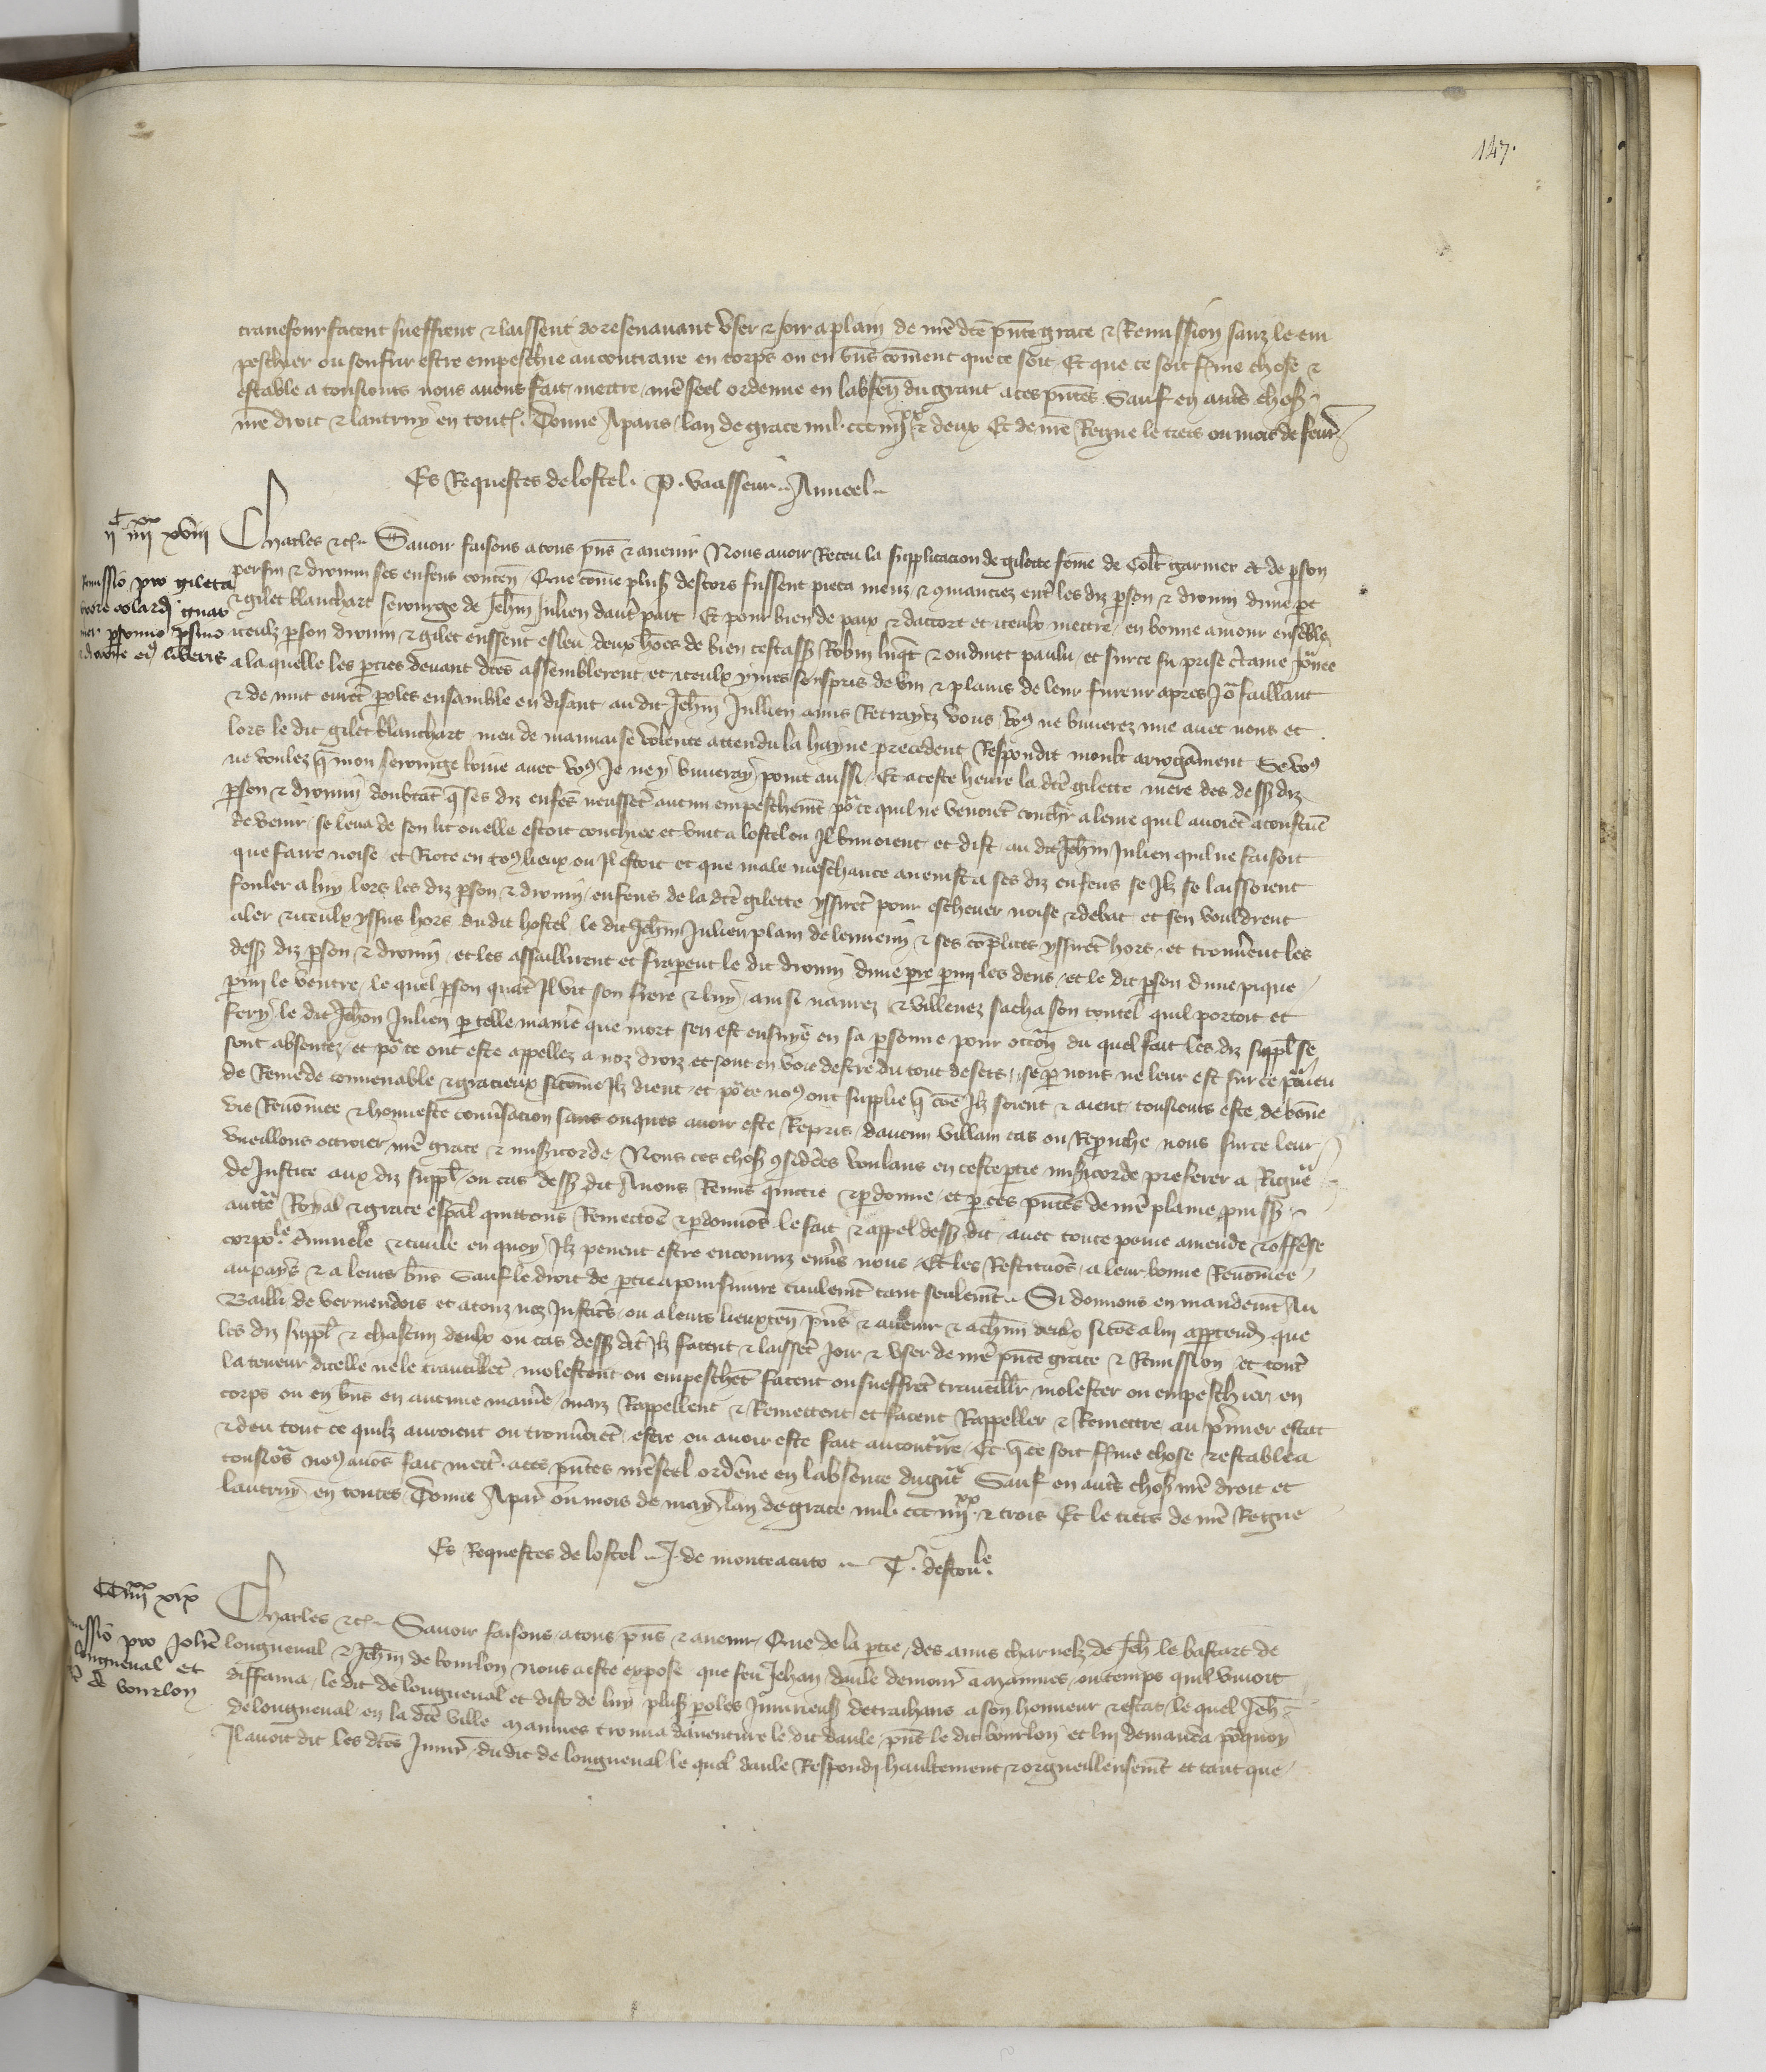 147.
facent sueffrent & laissent doresenavant user & joir a plain de nre dce pnte grace & Remission sanz le em
peschier ou souffrir estre empeschie au contraire en corps ou en biens coment que ce soit Et que ce soit ferme chose &
estable a tousiours nous avons fait mettre nre seel ordenne en labsen du grant a ces pntes Sauf en autres choses
nre droit & lautruy en toutes. Donne A paris lan de grace mil. ccc iiijxx & deux Et de nre Regne le tiers ou mois de fevr
Es Requestes de lostel. P. vaasseur .. Anneel ..
ijc iiijxx xviij
Charles &c Savoir faisons a tous pns & avenir Nous avoir Receu la supplicacion de gilette feme de Colt garnier et de pson
persin & drouin ses enfens conten Que come plus descors fussent pieca meuz & comanciez entre les diz pson & drouin dune pt
& gilet blanchart serourge de Jehn Julien dautre part Et pour bien de paix & daccort et iceulx mettre en bonne amour ensemble
iceulx pson drouin & gilet eussent esleu deux homes de bien cestass Robin & oudinet paulu et sur ce fu prise certaine Jornee
a laquelle les pties devant dces assemblerent et iceulx yvres sonspris de vin & plains de leur fureur apres Jo faillant
& de nuit eurent poles ensamble en disant au dit Jehn Jullien amis Retrayez vous vous ne buverez mie avec nous et
lors le dit gilet blanchart meu de mauvaise volente attendu la hayne precedent Respondit moult arrogament Se vous
ne voulez que mon serourge boive avec vous Je ne y buveray point aussi Et a ceste heure la dce gilette mere des dess diz
pson & drouin doubtant que ses diz enfens neussent aucun empeschement por ce quil ne venoient couchr a leure quil avoient acoustume
de venir se leva de son lit ou elle estoit couchiee et vint a lostel ou Il buvoient et dist au dit Jehn Julien quil ne faisoit
que faire noise et Riote en tous lieux ou Il estoit et que male meschance avenist a ses diz enfens se Ilz se laissoient
fouler a luy lors les diz pson & drouin enfens de la dce gilette yssirent pour eschever noise & debat et sen vouldrent
aler & iceulx yssus hors du dit hostel le dit Jehn Julien plain de lennemi & ses complices yssirent hors et trouverent les
dess diz pson & drouin et les assaillirent et fraperent le dit drouin dune pre parmi les dens et le dit pson dune pique
parmi le ventre le quel pson quant Il vit son frere & luy ainsi navrez & villenez sacha son coutel quil portoit et
fery le dit Jehan Julien par telle maniere que mort sen est ensuye en sa psonne pour occon du quel fait les diz suppl se
sont absentez et por ce ont este appellez a noz droiz et sont en voie destre du tout desers se par nous ne leur est sur ce pourveu
de Remede convenable & gracieux sicome Ilz dient et por ce nous ont supplie que come Ilz soient & aient tousiours este de bonne
vie Renomee & honneste conversacion sans onques avoir este Repris daucun villain cas ou Reprouche nous sur ce leur
vueillons octroier nre grace & misericorde Nous ces choses considerees voulans en ceste partie misericorde preferer a Rigueur
de Justice aux diz suppl ou cas dess dit Avons Remis quictie & pdonne et par ces pntes de nre plaine puiss
auctte Royal & grace espal quittons Remectons & pdonnons le fait & appel dess dit avec toute peine amende & offense
corpole criminele & civile en quoy Ilz pevent estre encouruz envers nous Et les Restituons a leur bonne Renomee
au pays & a leurs biens sauf le droit de partie a poursuivre civilement tant seulement .. Si donnons en mandement Au
Bailli de vermendois et a touz noz Justiciers ou a leurs lieuxten pns & avenir & a chun deulx sicome a lui appartendr que
les diz suppl & chascun deulx ou cas dess dit Ilz facent & laissent Joir & user de nre pnte grace & Remission et contre
la teneur dicelle ne le travaillent molestent ou empeschent facent ou sueffrent travaillier molester ou empeschier en
corps ou en biens en aucune maniere maiz Rappellent & Remettent et facent Rappeller & Remettre au premier estat
& deu tout ce quilz auroient ou trouveroient estre ou avoir este fait au contraire Et que ce soit ferme chose & estable a
tousiors nous avons fait mectre a ces pntes nre seel ordenne en labsence du grant Sauf en autres choses nre droit et
lautruy en toutes Donne A par ou mois de may lan de grace mil. ccc iiijxx & trois Et le tiers de nre Regne
Es Requestes de lostel .. J. de monteacuto .. T. destoule.
CC iiijxx xix
Charles &c Savoir faisons a tous pns & avenir Que de la partie des amis charnelz de Jeh le bastart de
longueval & Jehn de bourlon nous a este expose que feu Jehan daule demour a mannes ou temps quil vivoit
diffama le dit de longueval et dist de luy plus poles Injurieuses detraihans a son honneur & estat le quel Jeh
de longueval en la dce ville mannes trouva daventure le dit daule pnt le dit bourlon et lui demanda porquoy
Il avoit dit les dces Injur du dit de longueval le quel daule Respondi haultement & orgueilleusement et tant que
Remissio pro gileta
uxore colardi gnar
psono psino
& drone eius liberis
missio pro Johe
longueval et
de bourlon